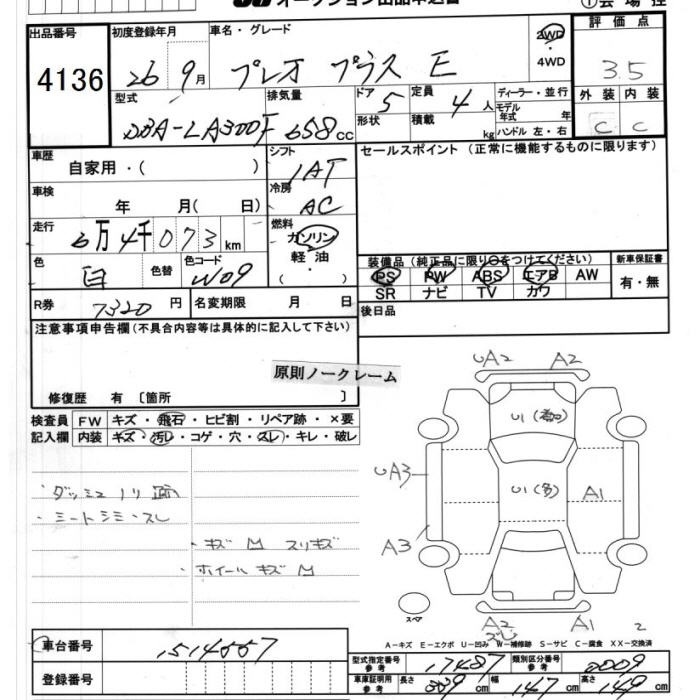 オークション出品申込書
①会場控
出品番号 初度登録年月 車名・グレード 2WD ・4WD 評価点
4136 26 9月 プレオ プラス E 3.5
型式 排気量 ドア 5 定員 4人 ディーラー・並行 外装 内装
DBA-LA300F 658cc 形状 積載 kg モデル年式 年 ハンドル 左・右 C C
車歴 自家用・( ) シフト 1AT セールスポイント (正常に機能するものに限ります)
車検 年 月( 日) 冷房 AC
走行 6万4千073km 燃料 ガソリン・軽油・( )
色 白 色替 色コード W09
装備品(純正品に限り○をつけてください) 新車保証書
PS PW ABS エアB AW 有・無
SR ナビ TV カワ
R券 7320円 名変期限 月 日 後日品
注意事項申告欄(不具合内容等は具体的に記入して下さい)
原則ノークレーム
修復歴 有〔箇所 〕
検査員 FW キズ・飛石・ヒビ割・リペア跡・×要
記入欄 内装 キズ・汚レ・コゲ・穴・スレ・キレ・破レ
UA2 A2
U1
UA3 U1(多) A1
・ダッシュノリ跡
・シートシミ・スレ
・キズ M スリキズ A3
・ホイールキズ M
スペア
A2 A1 2
A-キズ E-エクボ U-凹み W-補修跡 S-サビ C-腐食 XX-交換済
車台番号 1514557
登録番号
型式指定番号 参考 17487 類別区分番号 参考 0009
車庫証明用 参考 長さ cm 幅 147cm 高さ 149cm